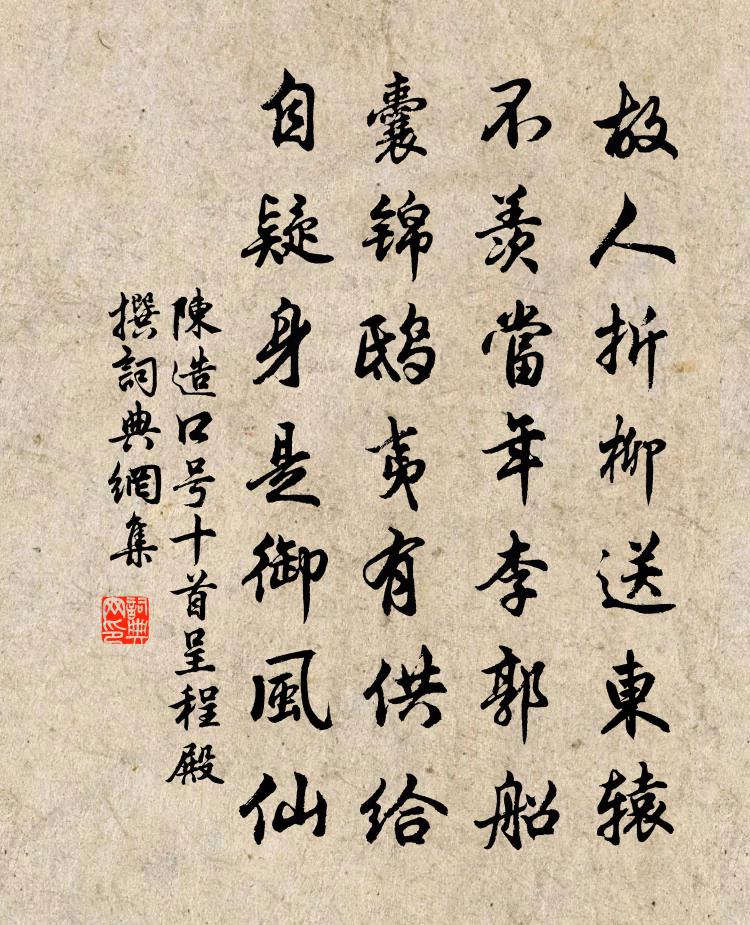 故人折柳送東辕
不羡當年李郭船
囊锦鸱夷有供给
自疑身是御風仙
陳造口号十首呈程殿
撰詞典網集
詞典网印